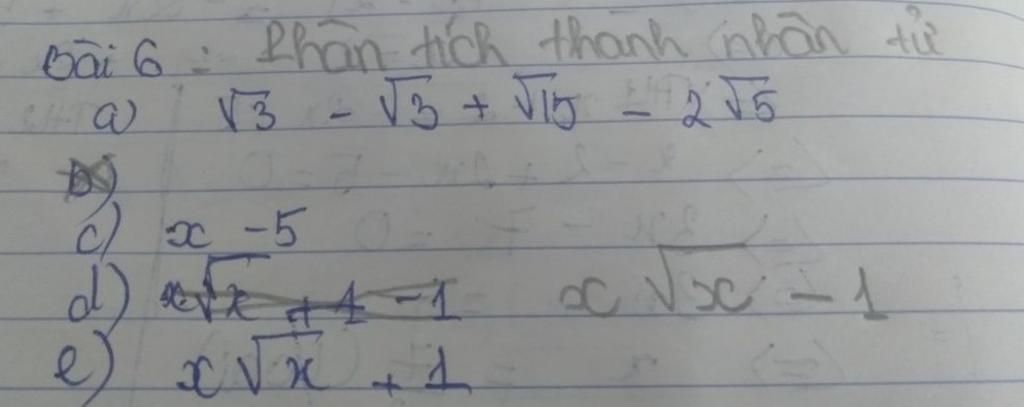 Bài 6 : Phân tích thành nhân tử
a) √3 - √3 + √15 - 2√5
b)
c) x - 5
d) x√x + 1 - 1 x√x - 1
e) x√x + 1